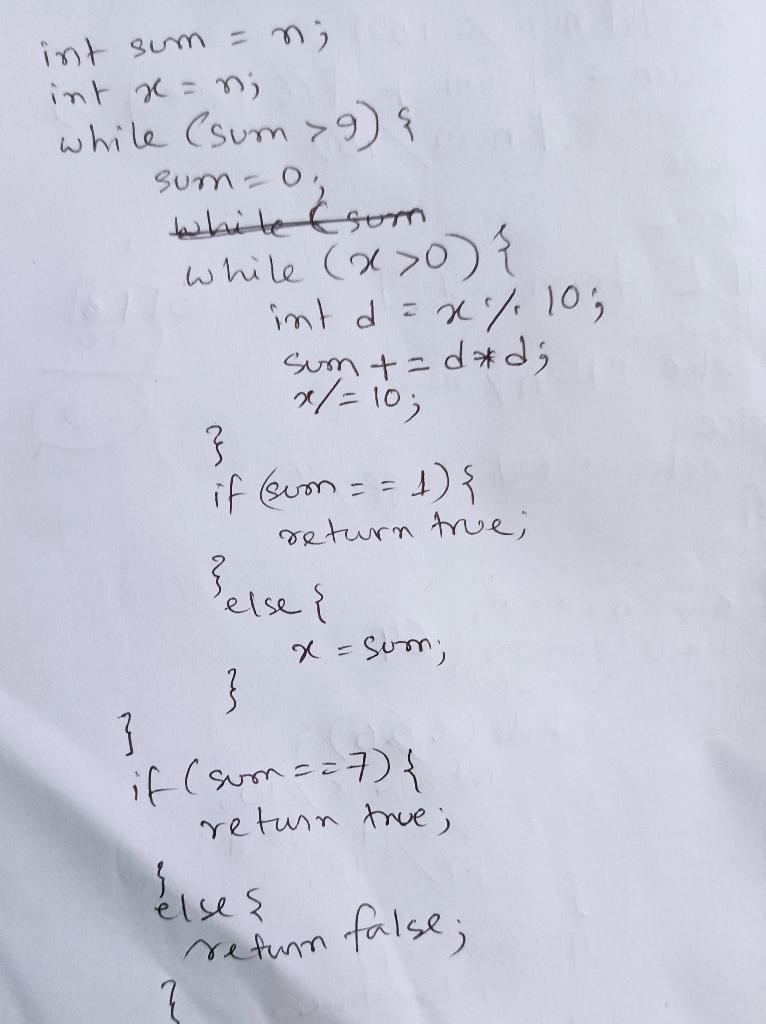 int sum = n;
int x = n;
while (sum > 9) {
sum = 0;
while (sum
while (x > 0) {
int d = x % 10;
sum += d*d;
x /= 10;
}
if (sum == 1) {
return true;
}
else {
x = sum;
}
}
if (sum == 7) {
return true;
}
else {
return false;
}